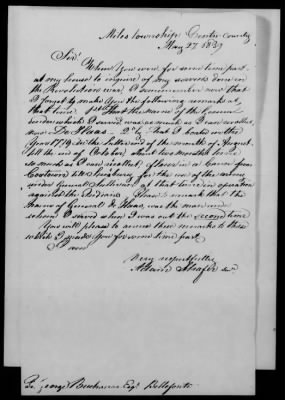 Miles township Centre County
May 27 1839
Sir,
When you were for some time past
at my house to inquire of my services done in
the Revolution war, I remember now that
I forgot to make you the following remarks at
that time, 1st That the name of the
under which I served was as much as I can recollect
was De Haas. 2ly That I boated in the
year 1779 in the latter end of the month of August
till the end of October about two months
so much as I can recollect flour in a Canoe from
till for the use of the army
under General Sullivan at that time in operation
against the Indians. Please remark that the
name of General De Haas, was the man under
whom I served when I was out the second time
You will please to annex these remarks to those
which I made you for some time past
I am
Very respectfully
Adam Shafer
To George Buchanan Esqr. Bellefonte